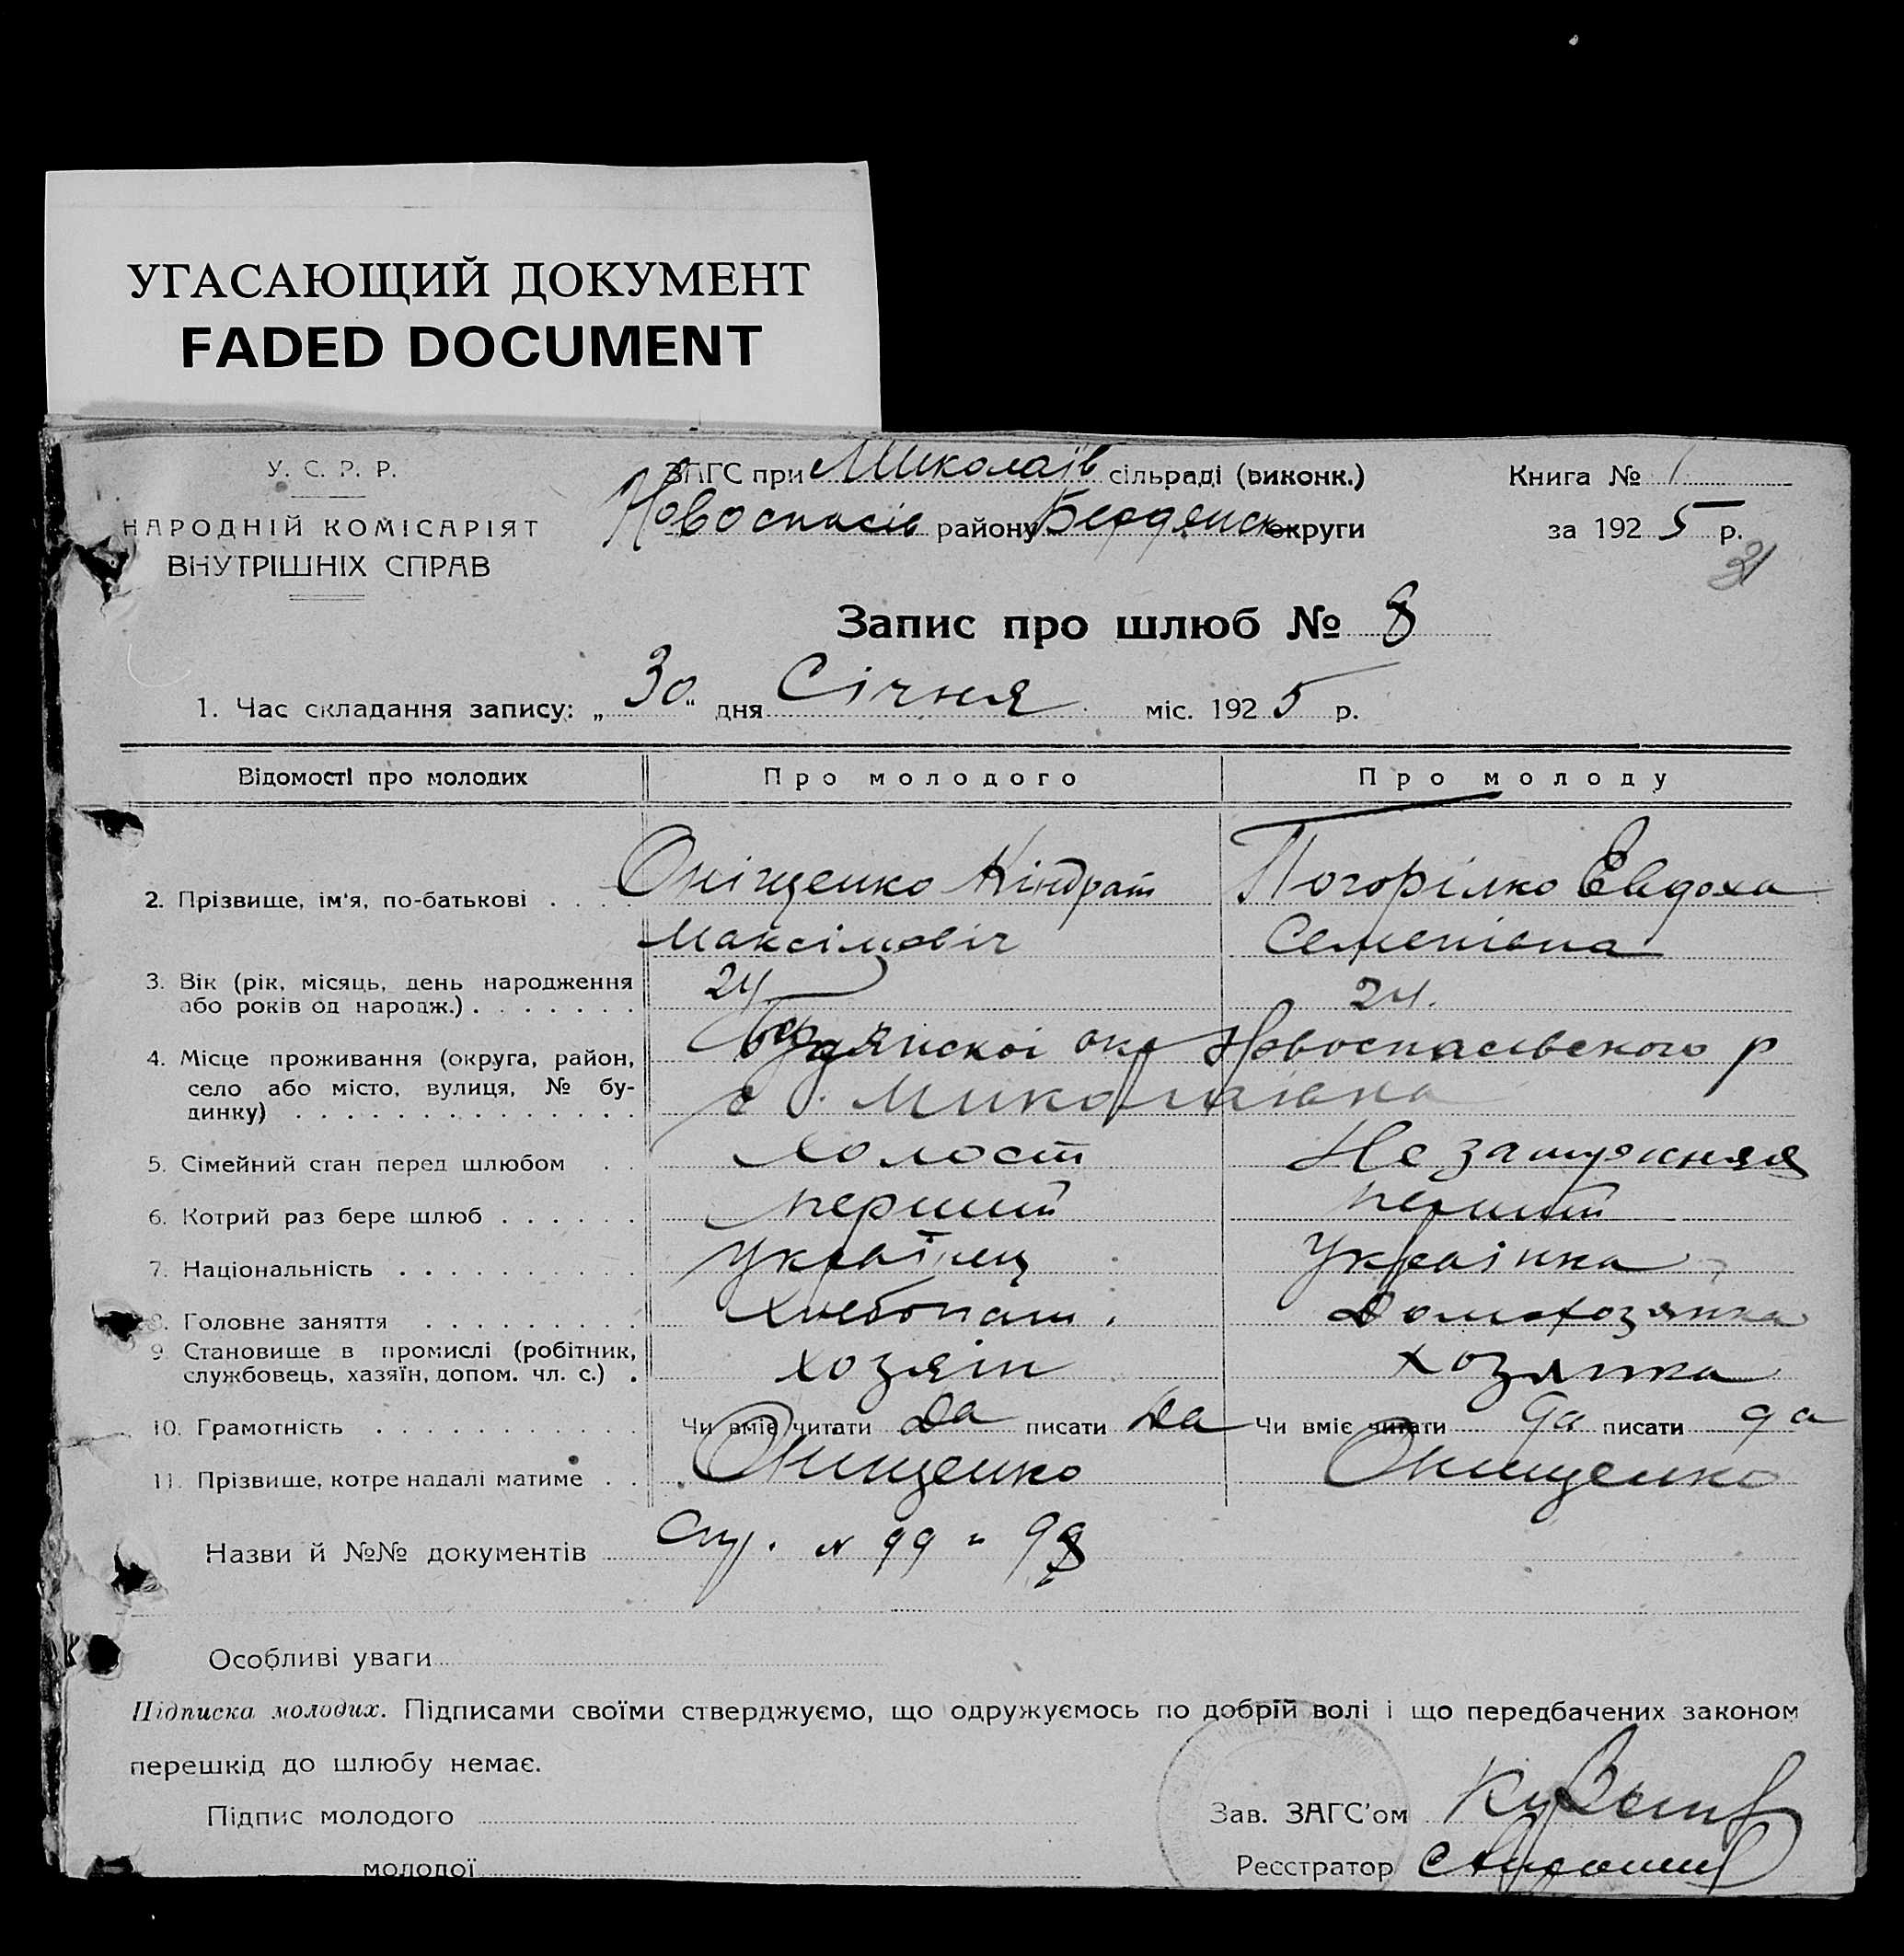 УГАСАЮЩИЙ ДОКУМЕНТ
FADED DOCUMENT
У. С. Р. Р.
НАРОДНІЙ КОМІСАРІЯТ
ВНУТРІШНІХ СПРАВ
ЗАГС при Миколаїв сільраді (виконк.)
Новоспасів району Бердянськ округи
Книга № 1
за 1925 р.
31
Запис про шлюб № 8
1. Час складання запису: „30" дня Січня міс. 1925 р.
Відомості про молодих Про молодого Про молоду
2. Прізвище, ім'я, по-батькові . . . . Оніщенко Кіндрат Погорілко Евдоха
Максімовіч Семенівна
3. Вік (рік, місяць, день народження 24 24.
або років од народж.) . . . . . . .
4. Місце проживання (округа, район, Бердянскоі окр Новоспасівского р
село або місто, вулиця, № бу-
динку) . . . . . . . . . . . . . с. Миколаівка
5. Сімейний стан перед шлюбом . . холост Не замужняя
6. Котрий раз бере шлюб . . . . . . перший перший
7. Національність . . . . . . . . . . Украінец Украінка
8. Головне заняття . . . . . . . . . Хлебопаш. Домохозяйка
9. Становище в промислі (робітник,
службовець, хазяїн, допом. чл. с.) . хозяін хозяйка
10. Грамотність . . . . . . . . . . . Чи вміє читати да писати да Чи вміє читати да писати да
11. Прізвище, котре надалі матиме . . Онищенко Онищенко
Назви й №№ документів № 99 - 98
Особливі уваги
Підписка молодих. Підписами своїми стверджуємо, що одружуємось по добрій волі і що передбачених законом
перешкід до шлюбу немає.
Підпис молодого
Зав. ЗАГС'ом
молодої
Реєстратор